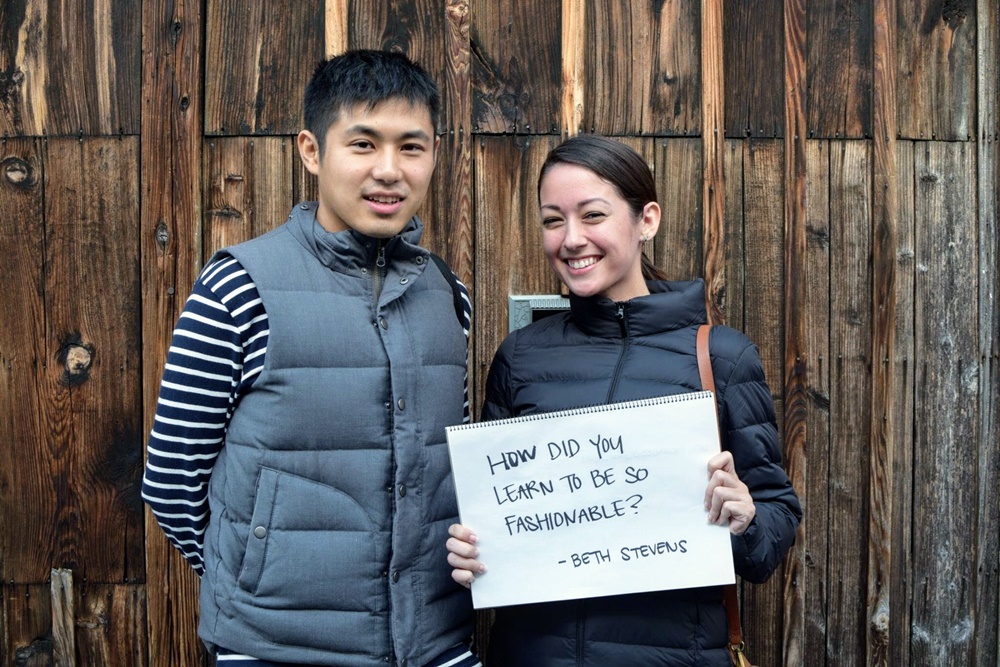 HOW DID YOU
LEARN TO BE SO
FASHIONABLE?
- BETH STEVENS